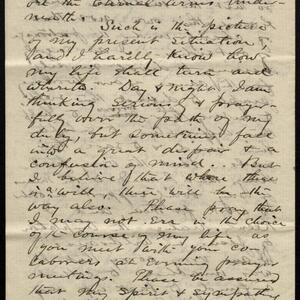 the Eternal arms under-
neath.
Such is the picture
of my present situation,
and I hardly know how
my life shall turn and
Day & night I am
thinking seriously & prayer-
fully over the path of my
duty, but sometimes
into a great despair & a
confusion of mind. But
I believe that where there
is a will there will be the
way also. Please pray that
I may not err in the choice
of a course of my life as
you meet with your co-
laborers at Evening prayer
meetings. Please be assured
that my spirit & sympathy